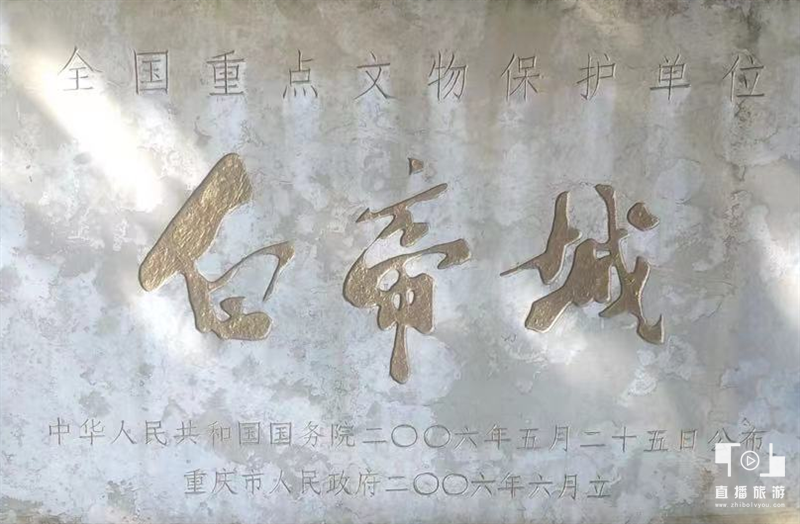 全国重点文物保护单位
白帝城
中华人民共和国国务院二〇〇六年五月二十五日公布
重庆市人民政府二〇〇六年六月立
直播旅游
www.zhibolvyou.com